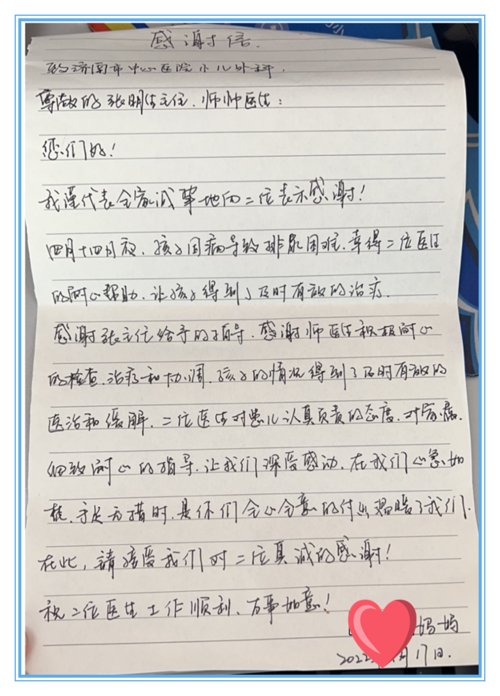 感谢信
致济南市中心医院小儿外科.
尊敬的张明生主任、师帅医生:
您们好!
我谨代表全家诚挚地向二位表示感谢!
四月十四日夜,孩子因病导致排尿困难,幸得二位医生
的耐心帮助,让孩子得到了及时有效的治疗.
感谢张主任给予的指导,感谢师医生积极耐心
的检查、治疗和协调,孩子的情况得到了及时有效的
医治和缓解.二位医生对患儿认真负责的态度,对家属
细致耐心的指导,让我们深受感动.在我们心急如
焚、手足无措时,是你们全心全意的付出温暖了我们.
在此,请接受我们对二位真诚的感谢!
祝二位医生工作顺利、万事如意!
妈妈
2022 月17日.